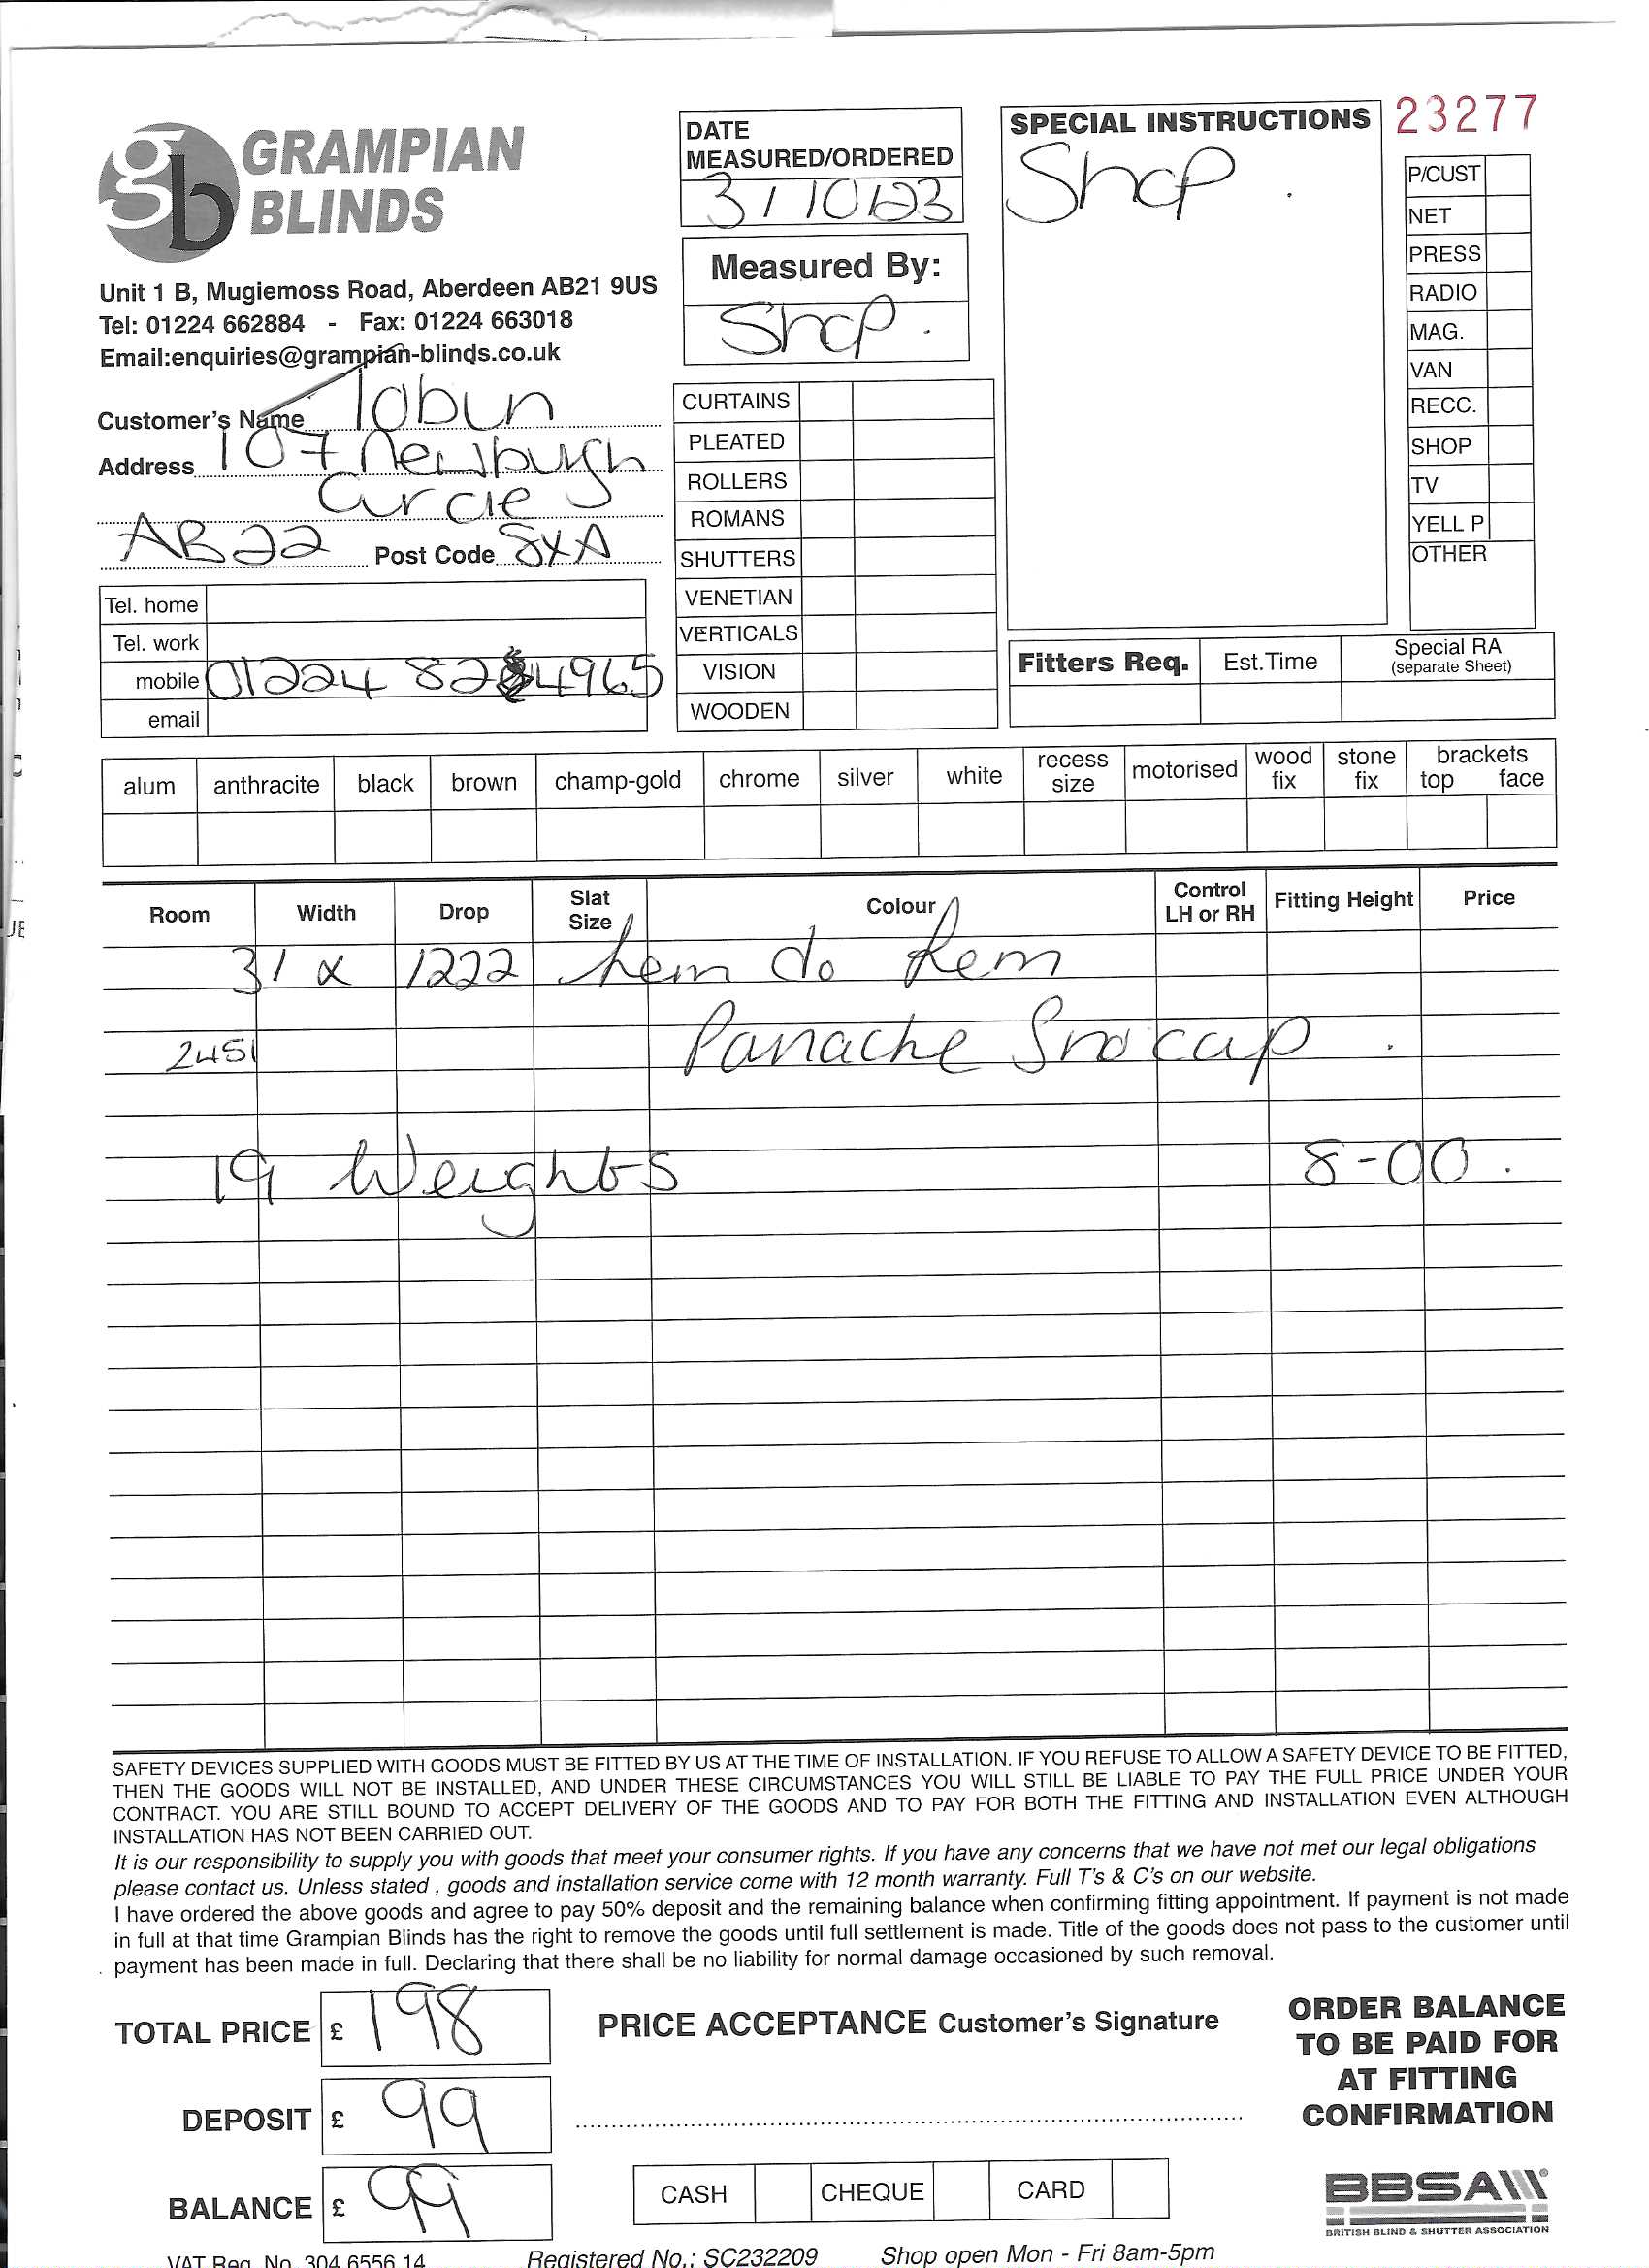 GRAMPIAN
BLINDS
Unit 1 B, Mugiemoss Road, Aberdeen AB21 9US
Tel: 01224 662884 - Fax: 01224 663018
Email:enquiries@grampian-blinds.co.uk
Customer's Name Tobin
Address 107 Newburgh
Circle
AB22 Post Code 8XA
Tel. home
Tel. work
mobile 01224 82 4965
email
DATE
MEASURED/ORDERED
3/10/23
Measured By:
Shop.
CURTAINS
PLEATED
ROLLERS
ROMANS
SHUTTERS
VENETIAN
VERTICALS
VISION
WOODEN
SPECIAL INSTRUCTIONS
Shop.
23277
P/CUST
NET
PRESS
RADIO
MAG.
VAN
RECC.
SHOP
TV
YELL P
OTHER
Fitters Req. Est.Time Special RA
(separate Sheet)
alum anthracite black brown champ-gold chrome silver white recess size motorised wood fix stone fix brackets top face
Room Width Drop Slat Size Colour Control LH or RH Fitting Height Price
31 x 1222 hem to hem
2451 Panache Sno cap.
19 Weights 8-00.
SAFETY DEVICES SUPPLIED WITH GOODS MUST BE FITTED BY US AT THE TIME OF INSTALLATION. IF YOU REFUSE TO ALLOW A SAFETY DEVICE TO BE FITTED,
THEN THE GOODS WILL NOT BE INSTALLED, AND UNDER THESE CIRCUMSTANCES YOU WILL STILL BE LIABLE TO PAY THE FULL PRICE UNDER YOUR
CONTRACT. YOU ARE STILL BOUND TO ACCEPT DELIVERY OF THE GOODS AND TO PAY FOR BOTH THE FITTING AND INSTALLATION EVEN ALTHOUGH
INSTALLATION HAS NOT BEEN CARRIED OUT.
It is our responsibility to supply you with goods that meet your consumer rights. If you have any concerns that we have not met our legal obligations
please contact us. Unless stated , goods and installation service come with 12 month warranty. Full T's & C's on our website.
I have ordered the above goods and agree to pay 50% deposit and the remaining balance when confirming fitting appointment. If payment is not made
in full at that time Grampian Blinds has the right to remove the goods until full settlement is made. Title of the goods does not pass to the customer until
payment has been made in full. Declaring that there shall be no liability for normal damage occasioned by such removal.
TOTAL PRICE £ 198
DEPOSIT £ 99
BALANCE £ 99
PRICE ACCEPTANCE Customer's Signature
CASH CHEQUE CARD
ORDER BALANCE
TO BE PAID FOR
AT FITTING
CONFIRMATION
BBSA
BRITISH BLIND & SHUTTER ASSOCIATION
VAT Reg. No. 304 6556 14 Registered No.: SC232209 Shop open Mon - Fri 8am-5pm